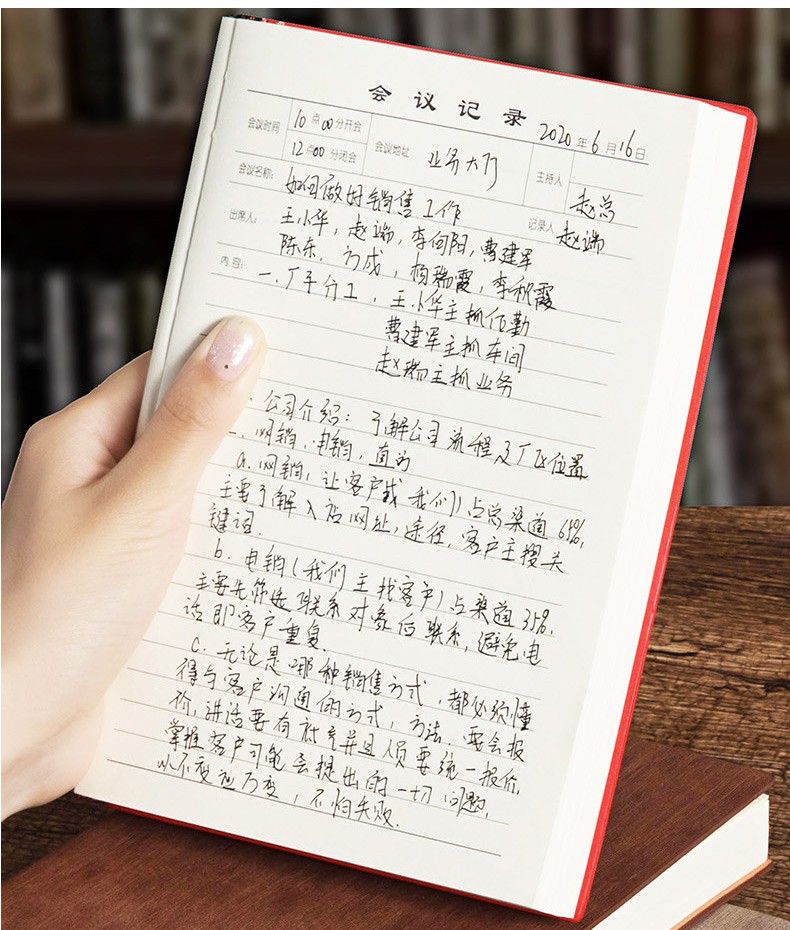 会议记录
2020年6月16日
会议时间 10点00分开会 12点00分闭会 会议地址 业务大厅 主持人 赵总
会议名称: 如何做好销售工作 记录人 赵瑞
出席人: 王小华,赵瑞,李向阳,曹建军
陈东,方成,杨瑞霞,李秋霞
内容: 一.厂子分工,王小华主抓后勤
曹建军主抓车间
赵瑞主抓业务
公司介绍:了解公司流程及厂区位置
网销,电销,直销
a.网销,让客户找我们)占总渠道65%,
主要了解入站网址,途径,客户主搜关
键词.
b.电销(我们主找客户)占渠道35%.
主要先筛选联系对象后联系,避免电
话即客户重复.
c.无论是哪种销售方式,都必须懂
得与客户沟通的方式,方法.要会报
价,讲话要有 并且人员要统一报价,
掌握客户可能会提出的一切问题,
以不变应万变,不怕失败.